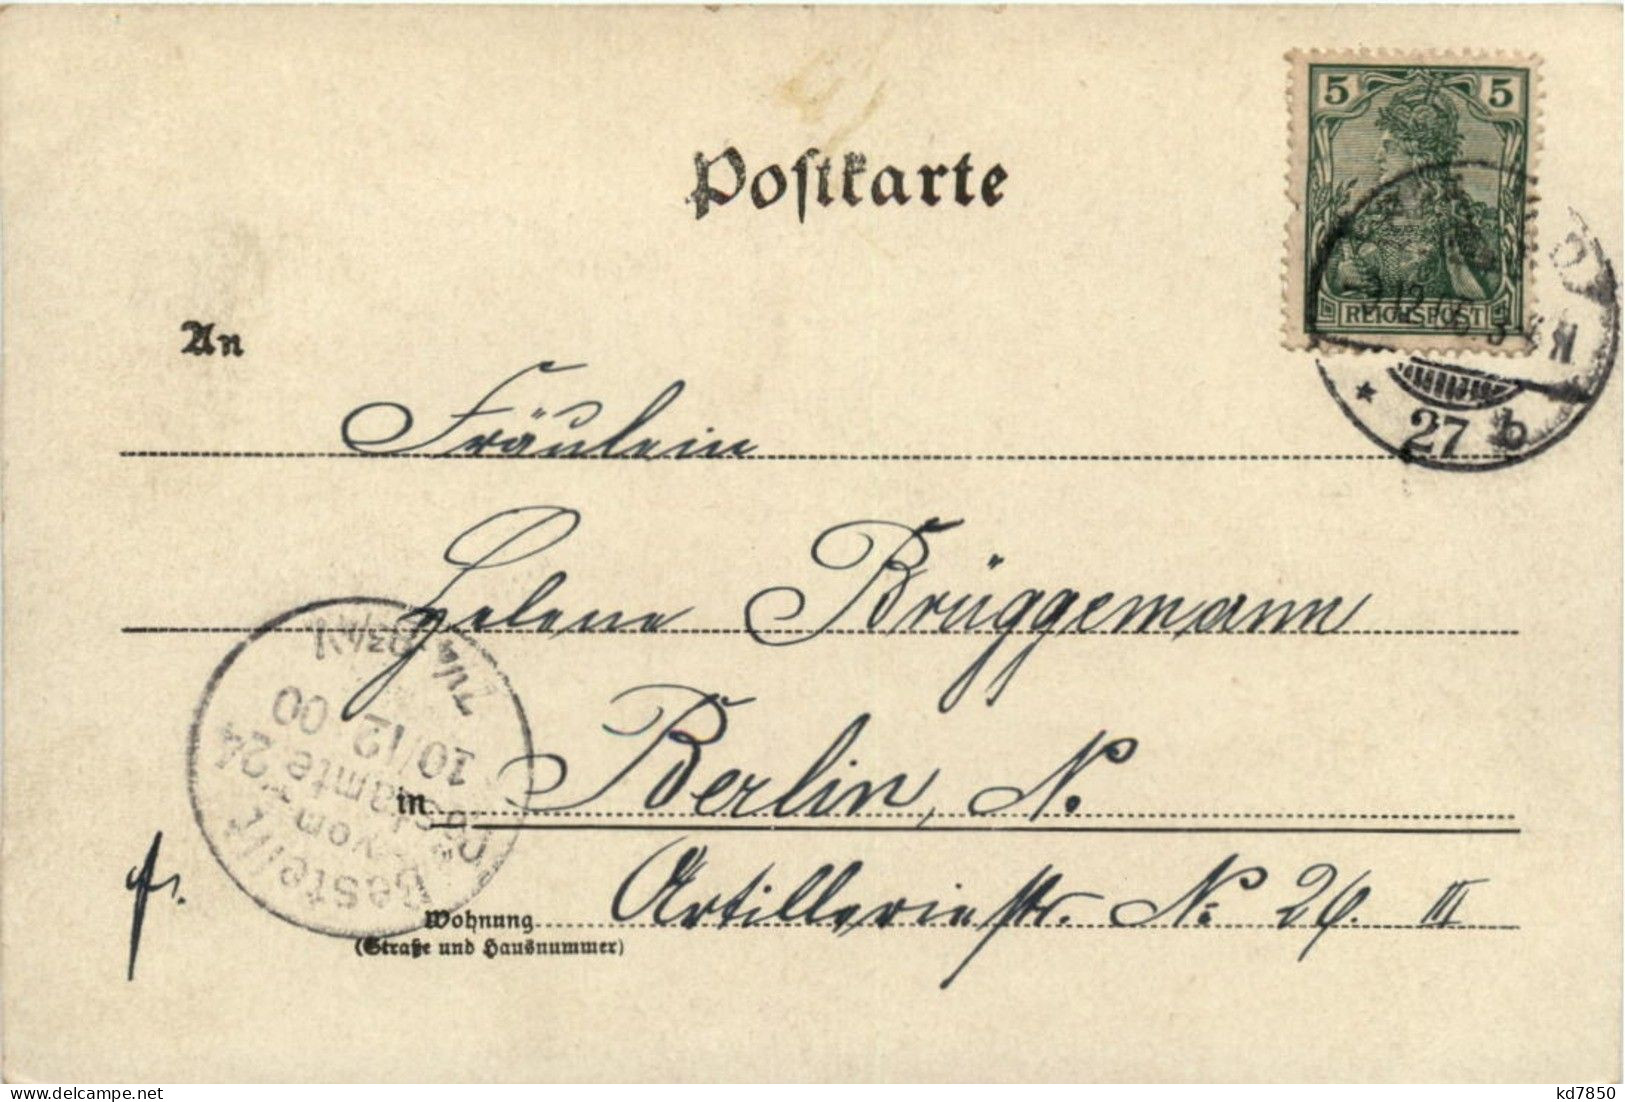 Postkarte
5 5
REICHSPOST
27 b
An
Fräulein
Helene Brüggemann
Bestellt
vom
Postamte 24
10/12 00
in Berlin, N.
fr.
Wohnung Artilleriestr. No 26. III
(Straße und Hausnummer)
delcampe.net
kd7850